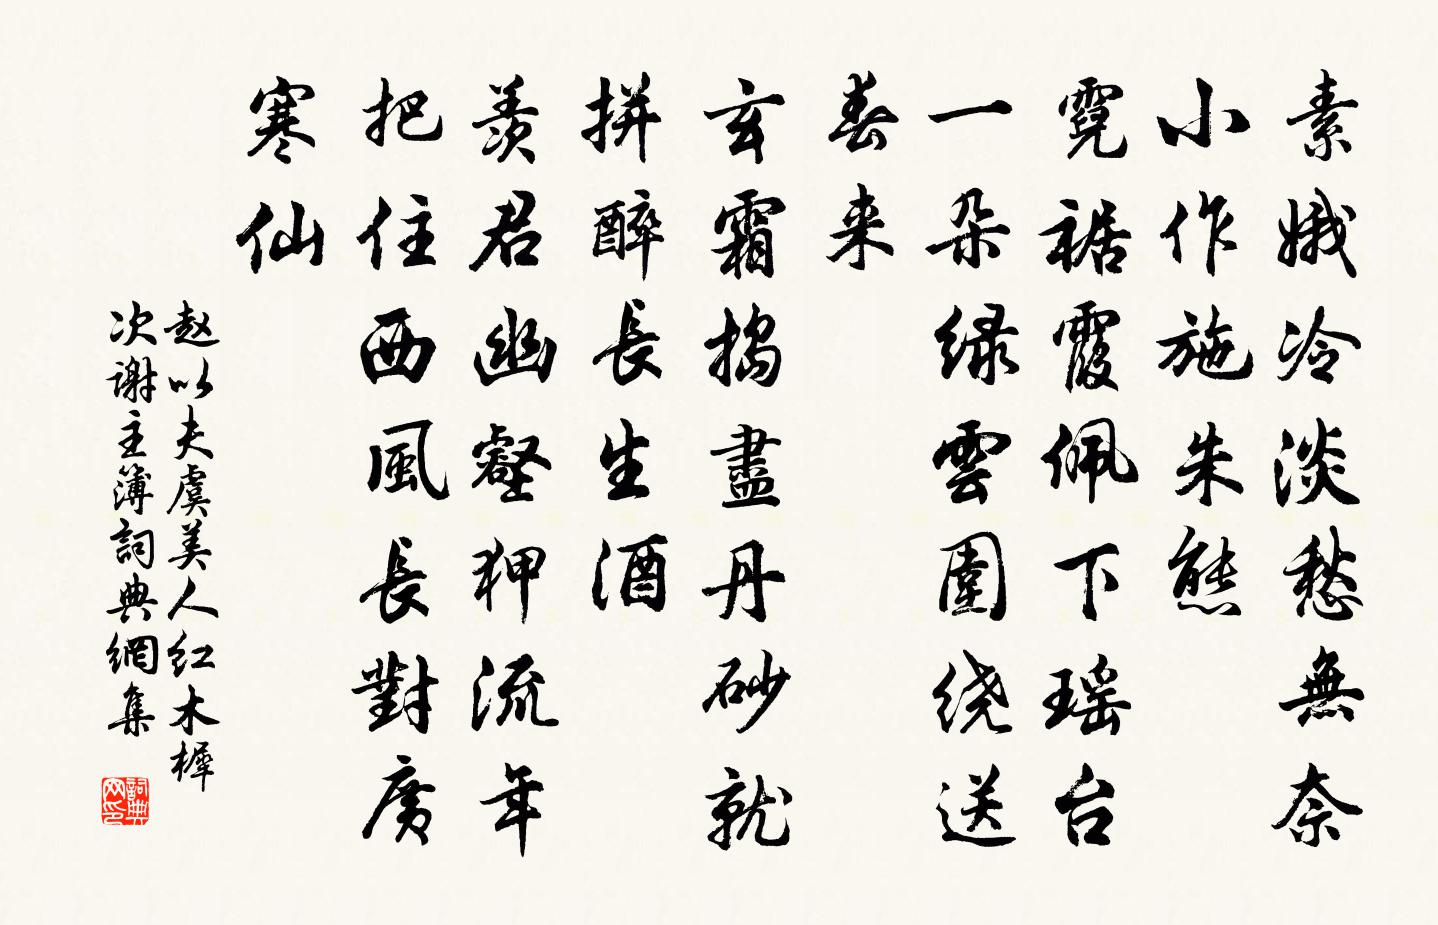 素娥冷淡愁無奈
小作施朱態
霓裾霞佩下瑶台
一朵绿雲圍绕送
春来
玄霜搗盡丹砂就
拼醉長生酒
羨君幽壑狎流年
把住西風長對廣
寒仙
赵以夫虞美人红木樨
次谢主簿詞典網集
詞典网印